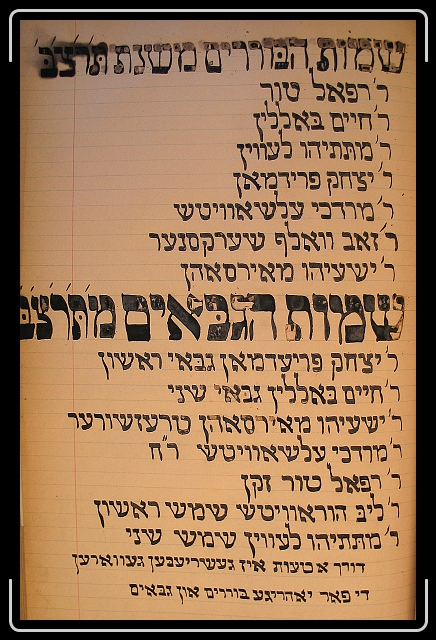 שמות הבוררים משנת תרצ״ב
ר׳ רפאל טור
ר׳ חיים באלללין
ר׳ מתתיהו לעוויץ
ר׳ יצחק פרידמאן
ר׳ מרדכי עלשאוויטש
ר׳ זאב וואלף שערקסנער
ר׳ ישעיהו מאירסאהן
שמות הגבאים מתרצ״ב
ר׳ יצחק פריעדמאן גבאי ראשון
ר׳ חיים באלללין גבאי שני
ר׳ ישעיהו מאירסאהן טרעזשורער
ר׳ מרדכי עלשאוויטש ר״ח
ר׳ רפאל טור זקן
ר׳ ליב הוראוויטש שימש ראשון
ר׳ מתתיהו לעוויץ שימש שני
דורך א טעות איז געשריעבען געווארען
די פאר יאהריגע בוררים און גבאים